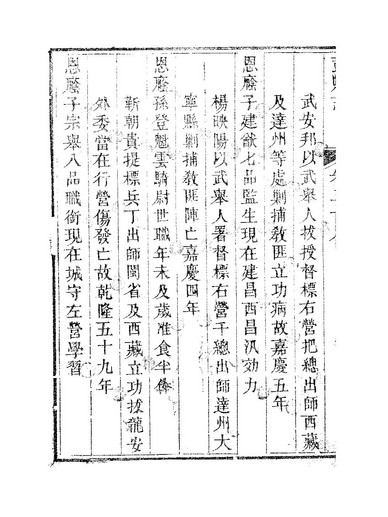 武安邦以武舉人拔授督標右營把總出師西藏
及達州等處剿捕教匪立功病故嘉慶五年
恩廕子建猷七品監生現在建昌西昌汛効力
楊映陽以武舉人署督標右營千總出師達州大
寧縣剿捕教匪陣亡嘉慶四年
恩廕孫登魁雲騎尉世職年未及歲准食半俸
靳朝貴提標兵丁出師閩省及西藏立功拔龍安
外委當在行營傷發亡故乾隆五十九年
恩廕子宗舉八品職銜現在城守左營學習